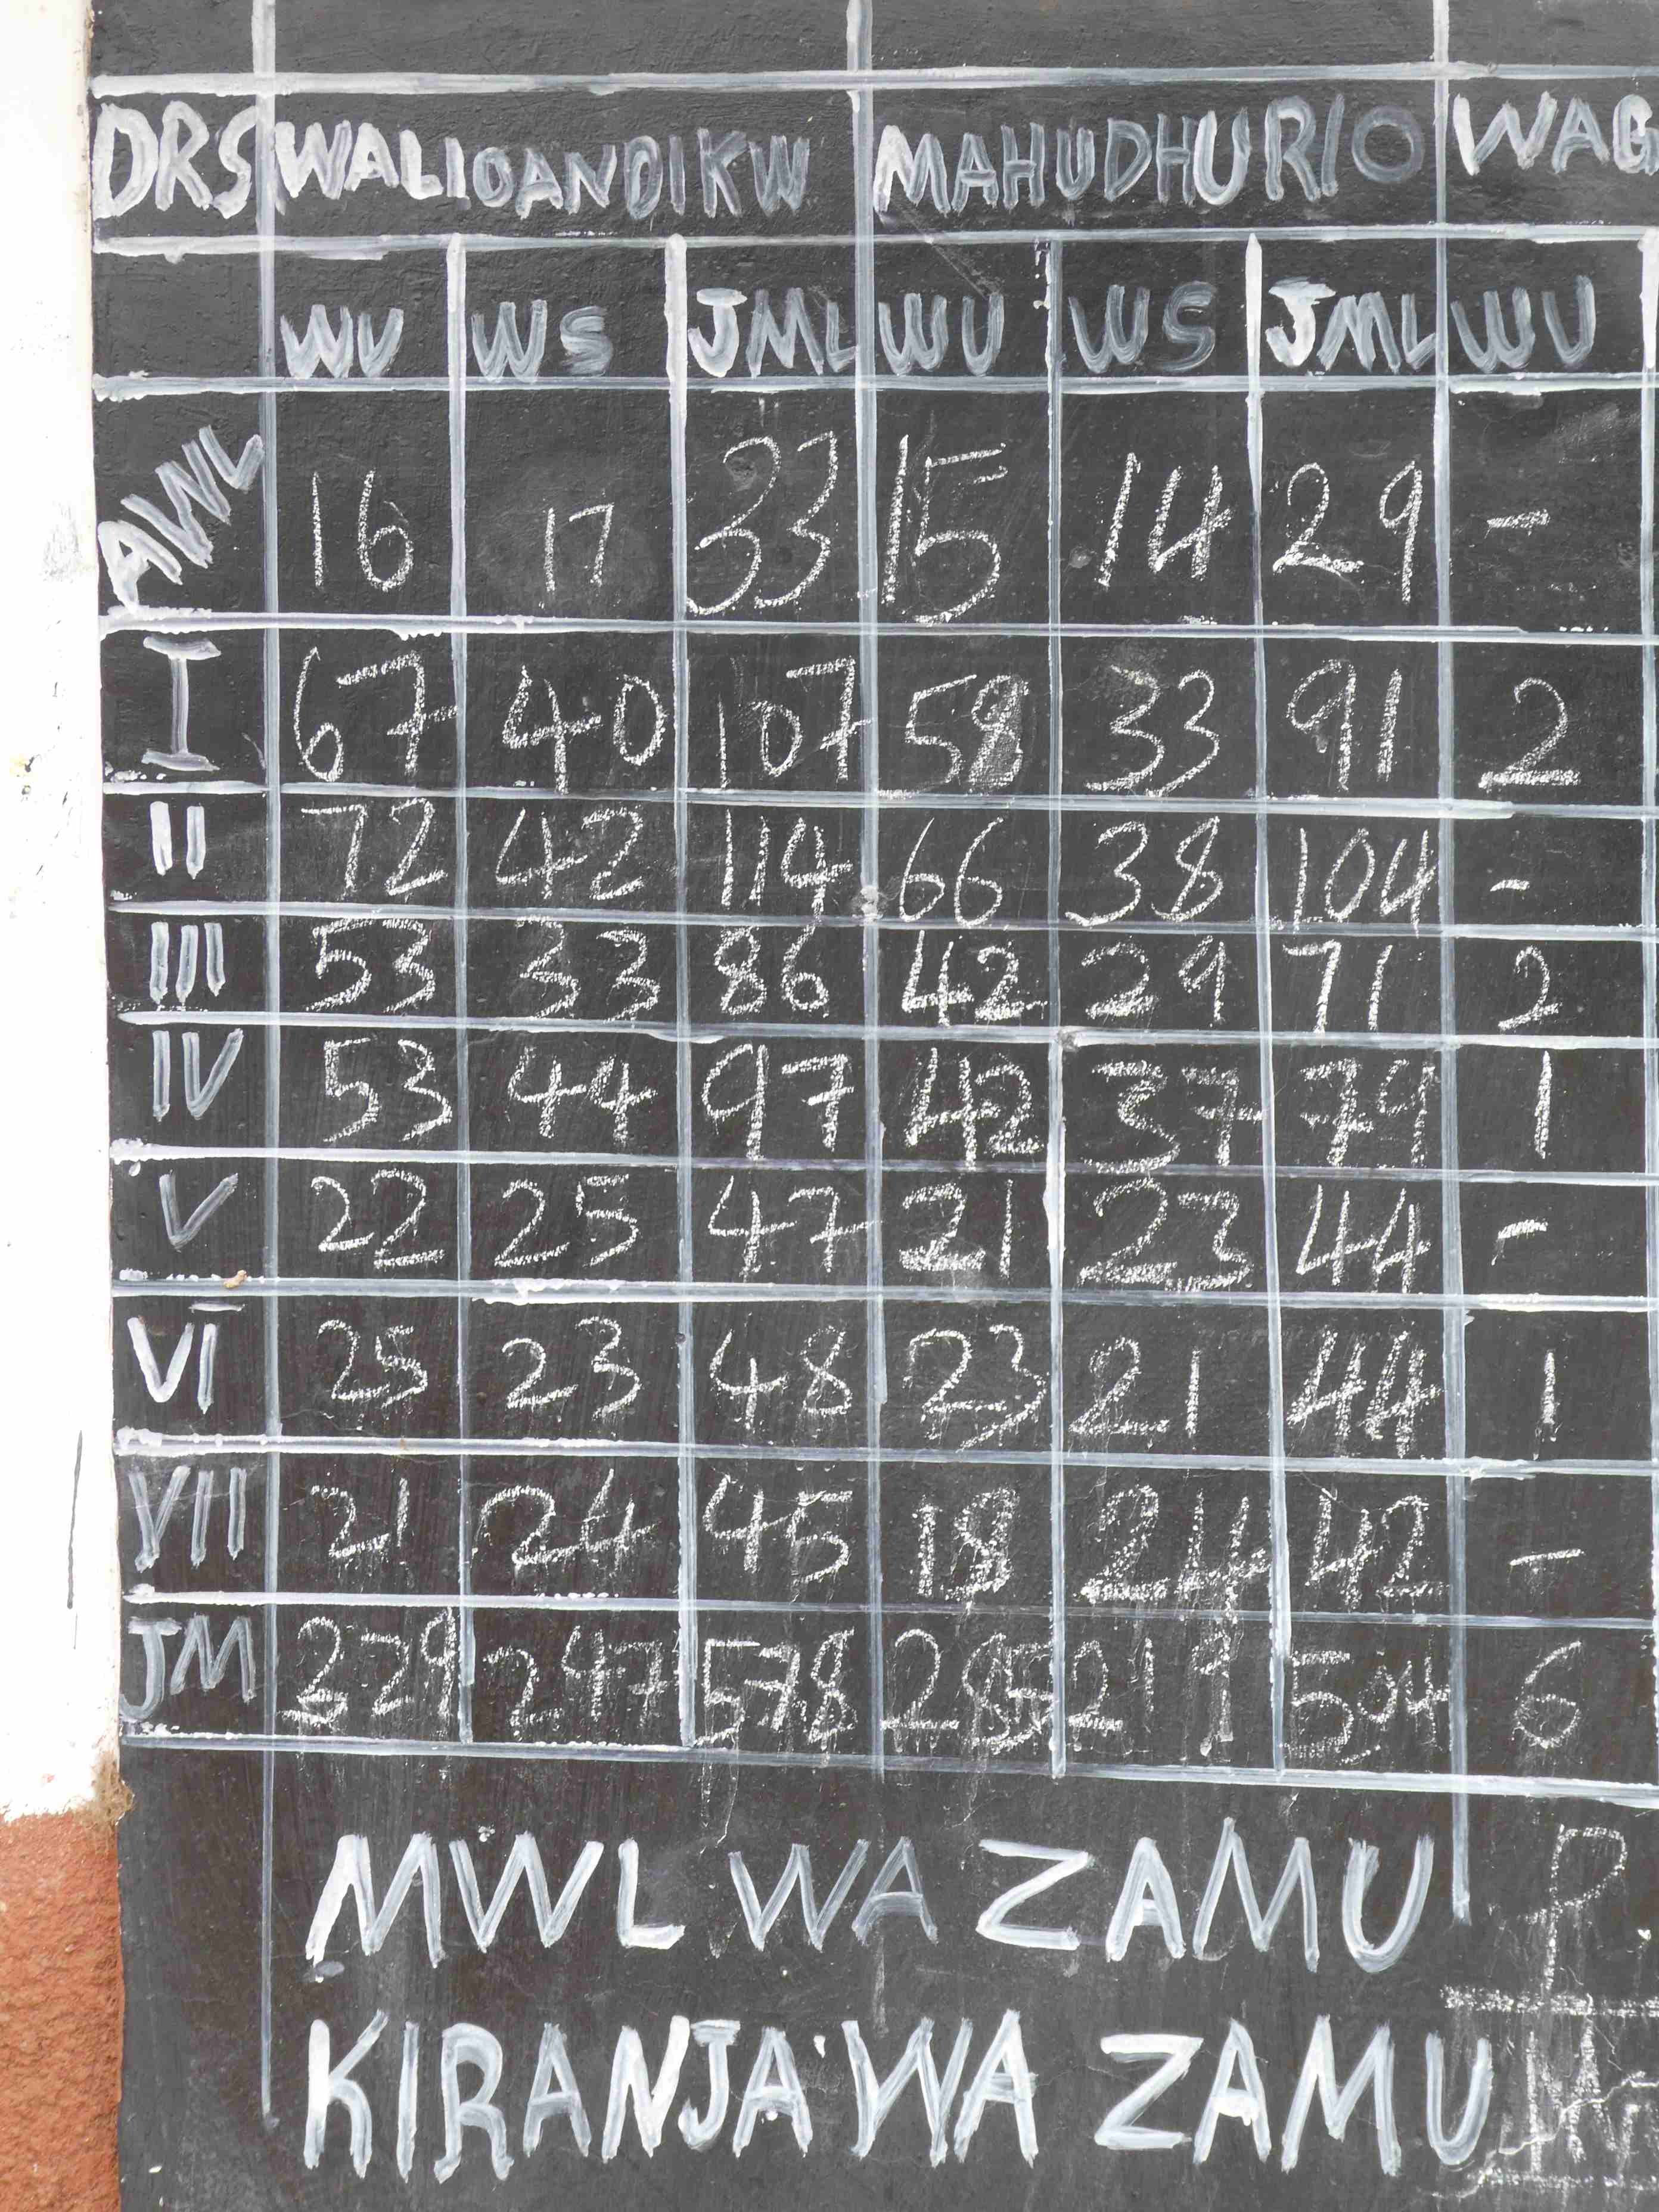 DRS WALIOANDIKW MAHUDHURIO WAG
WU WS JML WU WS JML WU
AWL 16 17 33 15 14 29 -
I 67 40 107 58 33 91 2
II 72 42 114 66 38 104 -
III 53 33 86 42 29 71 2
IV 53 44 97 42 37 79 1
V 22 25 47 21 23 44 -
VI 25 23 48 23 21 44 1
VII 21 24 45 18 24 42 -
JM 229 247 578 285 219 504 6
MWL WA ZAMU
KIRANJA WA ZAMU